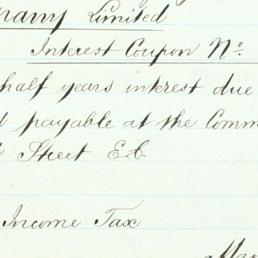 pany Limited
Interest Coupon No.
half years interest due
payable at the Comm
Street E.C.
Income Tax